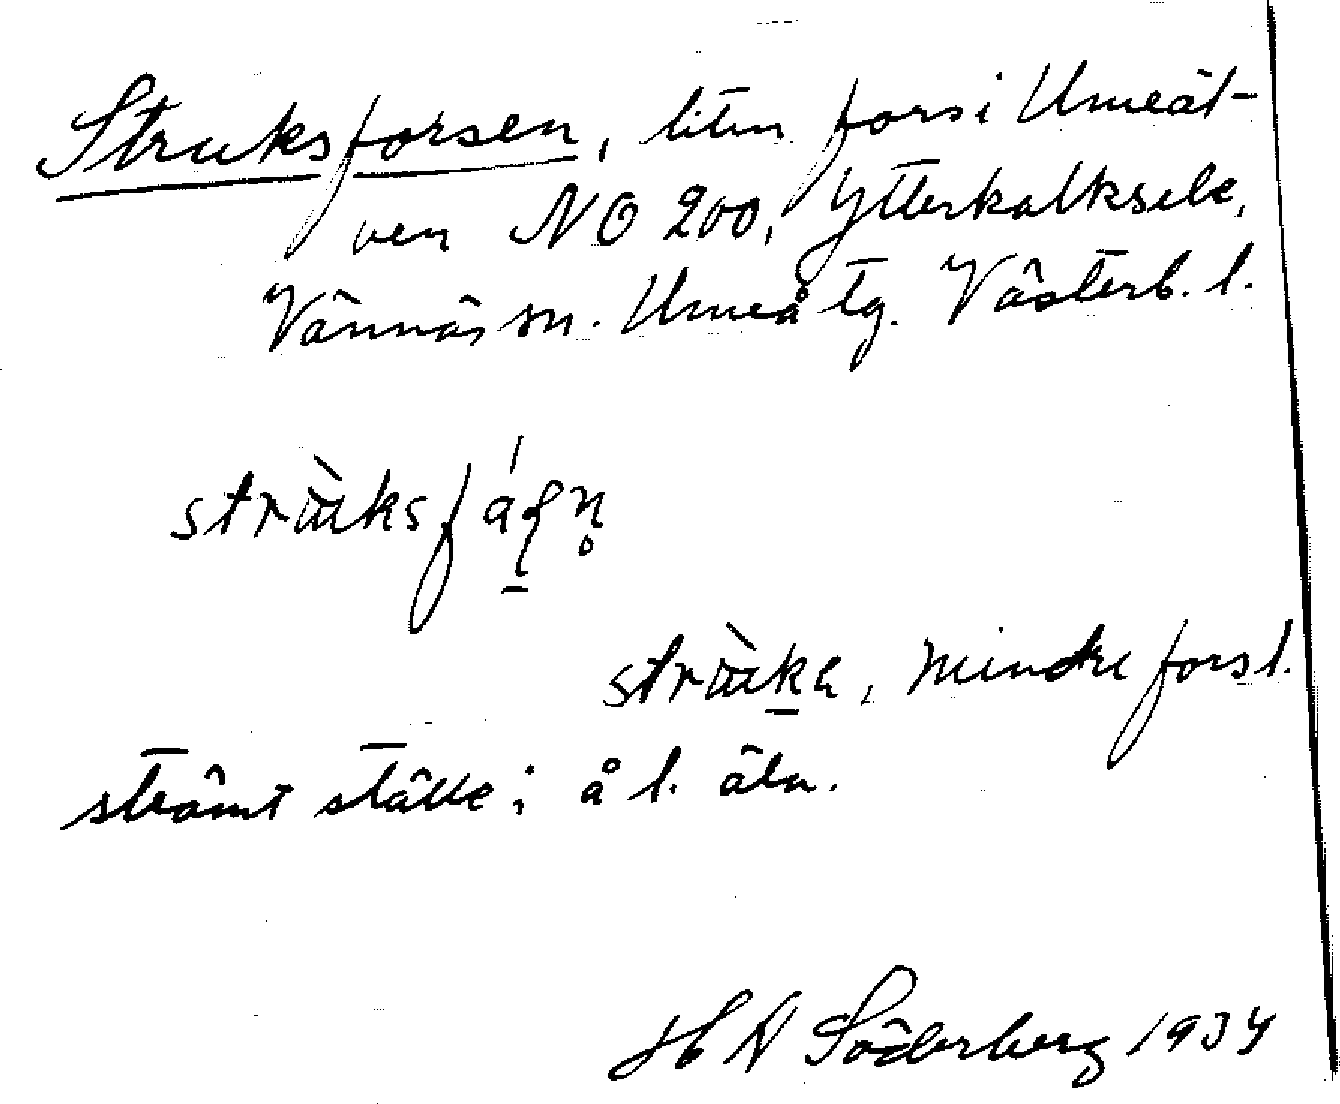 Struksforsen, liten fors i Umeäl-
ven NO 200, Ytterkalksele,
Vännäs sn. Umeå tg. Västerb. l.
mindre fors l.
strömt ställe i å l. älv.
H N Söderberg 1934